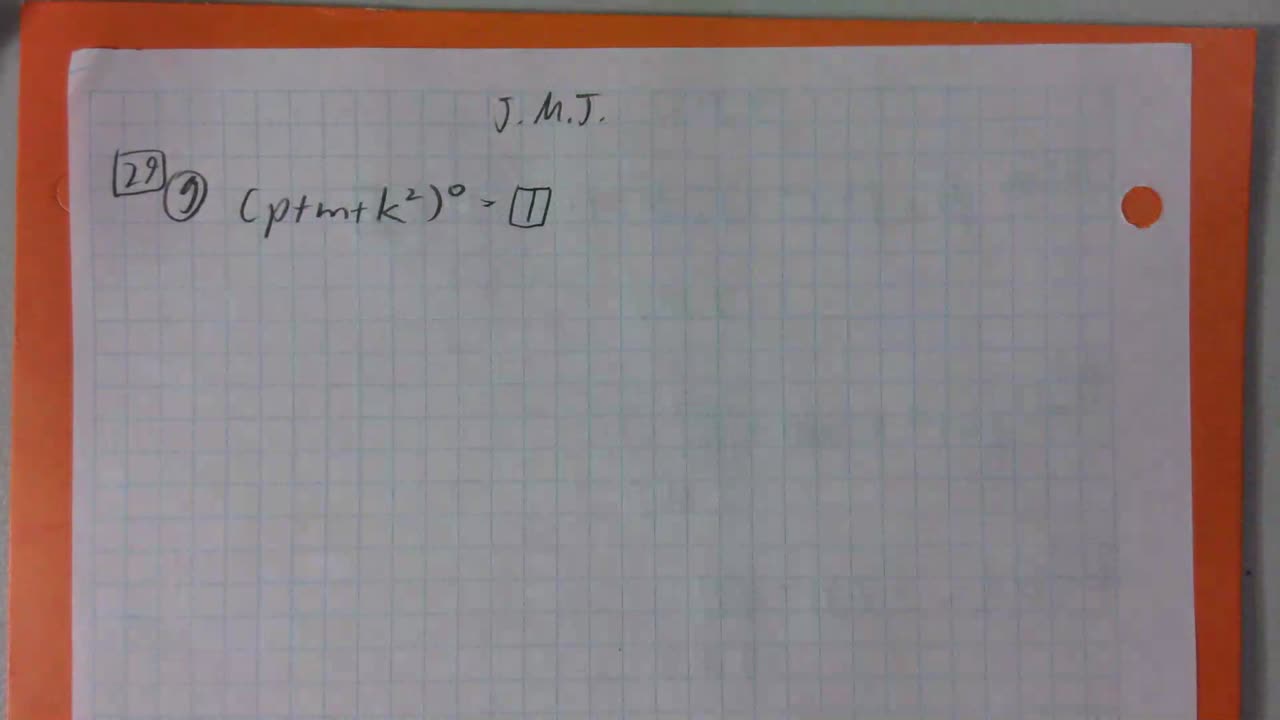 J.M.J.
29 9 (p+m+k²)⁰ = 1